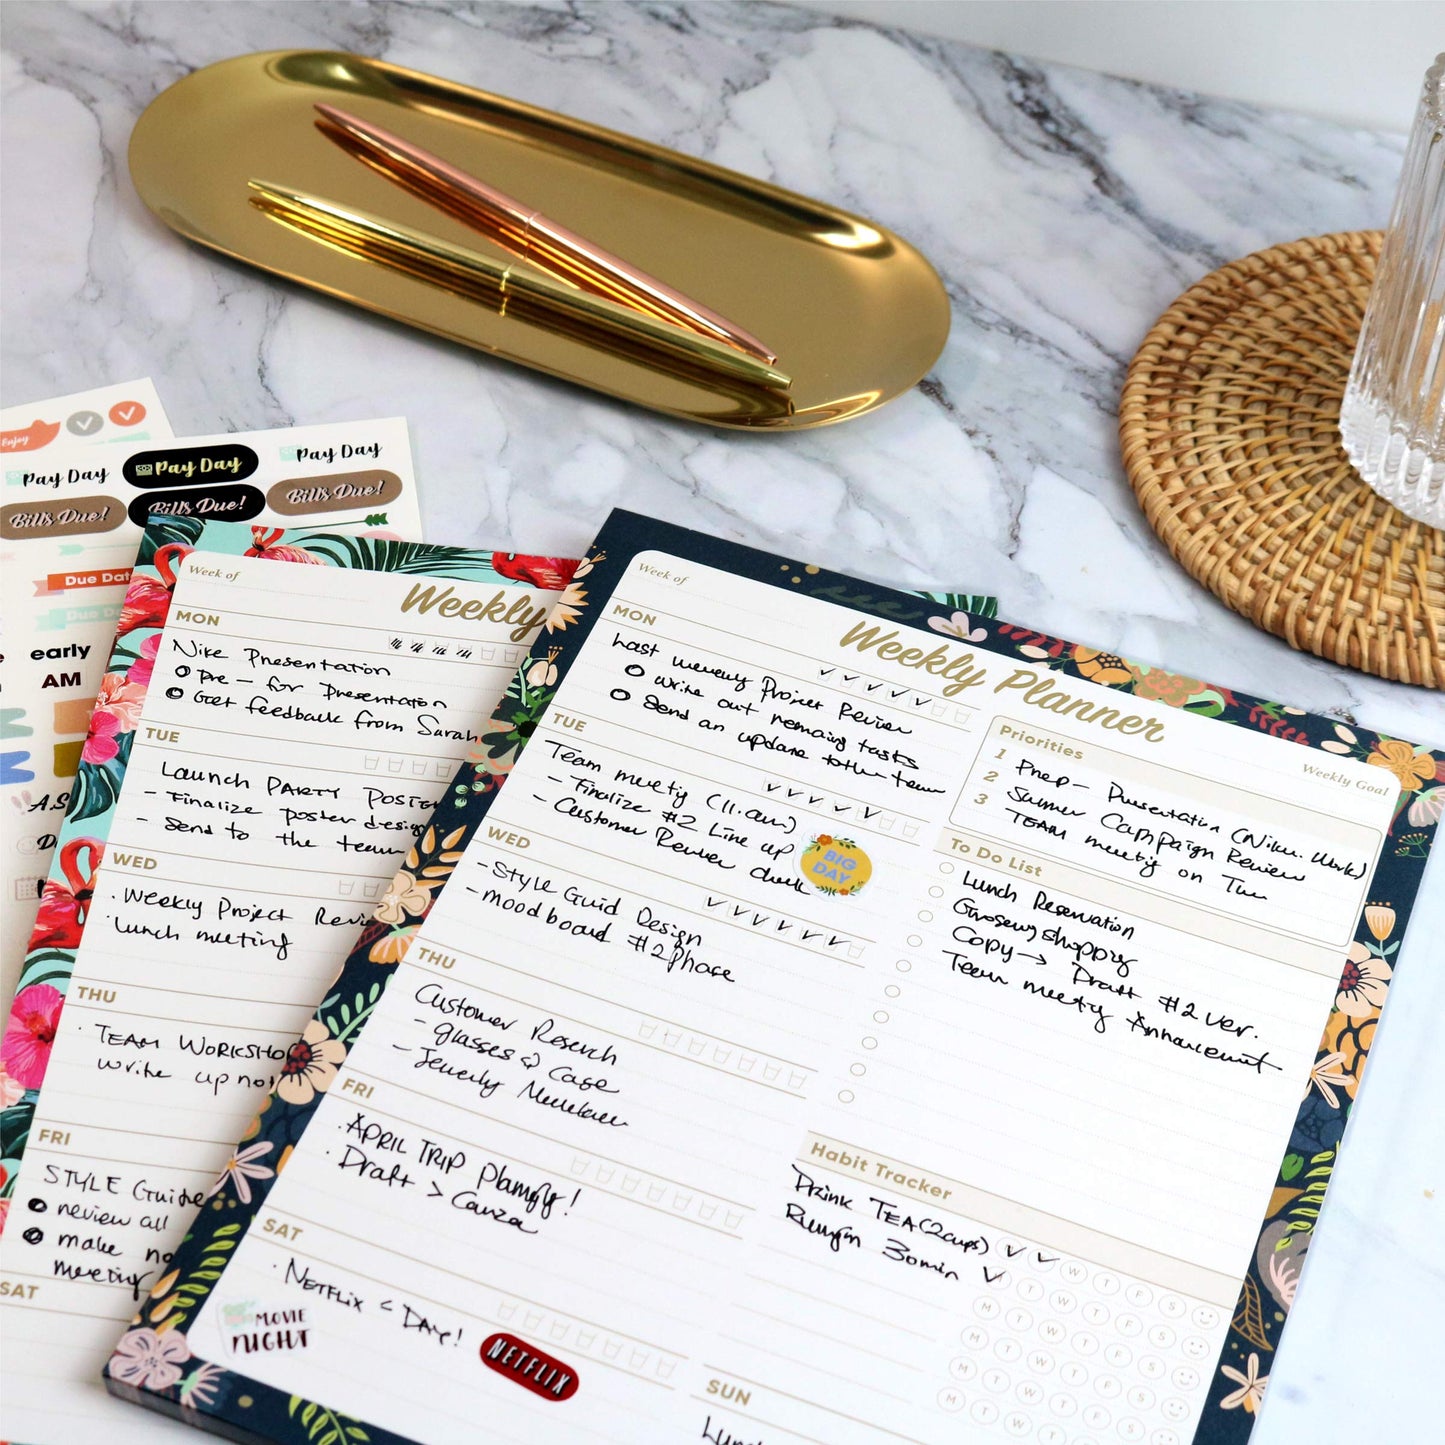 Enjoy
Pay Day
Pay Day
Pay Day
Bills Due!
Bills Due!
Bills Due!
Due Dat
Due Da
early
AM
Week of
Weekly
MON
Nike Presentation
Pre - for Presentation
Get feedback from Sarah
TUE
Launch PARTY POSTE
- Finalize poster design
- Send to the team
WED
· Weekly Project Revi
· Lunch meeting
THU
· TEAM WORKSHO
write up not
FRI
STYLE Guide
review all
make no
meeting
SAT
Week of
Weekly Planner
MON
Last Project Review
write out tasks
Send an update team
TUE
Team (11.am)
- Finalize #2 Line up
- Customer Review
BIG
DAY
WED
- Style Guid Design
- mood board #2 Phase
THU
Customer
- glasses & Case
FRI
· APRIL TRIP !
· Draft >
SAT
· NETFLIX < Day!
MOVIE
NIGHT
NETFLIX
Priorities
Weekly Goal
1 Prep- Presentation
2 Campaign Review
3 TEAM on Tue
To Do List
Lunch Reservation
shopping
Copy → Draft #2 ver.
Team
Habit Tracker
Drink TEA (2cups)
30min
W T F S
M T W T F S
M T W T F S
M T W T F S
M T W T F S
SUN